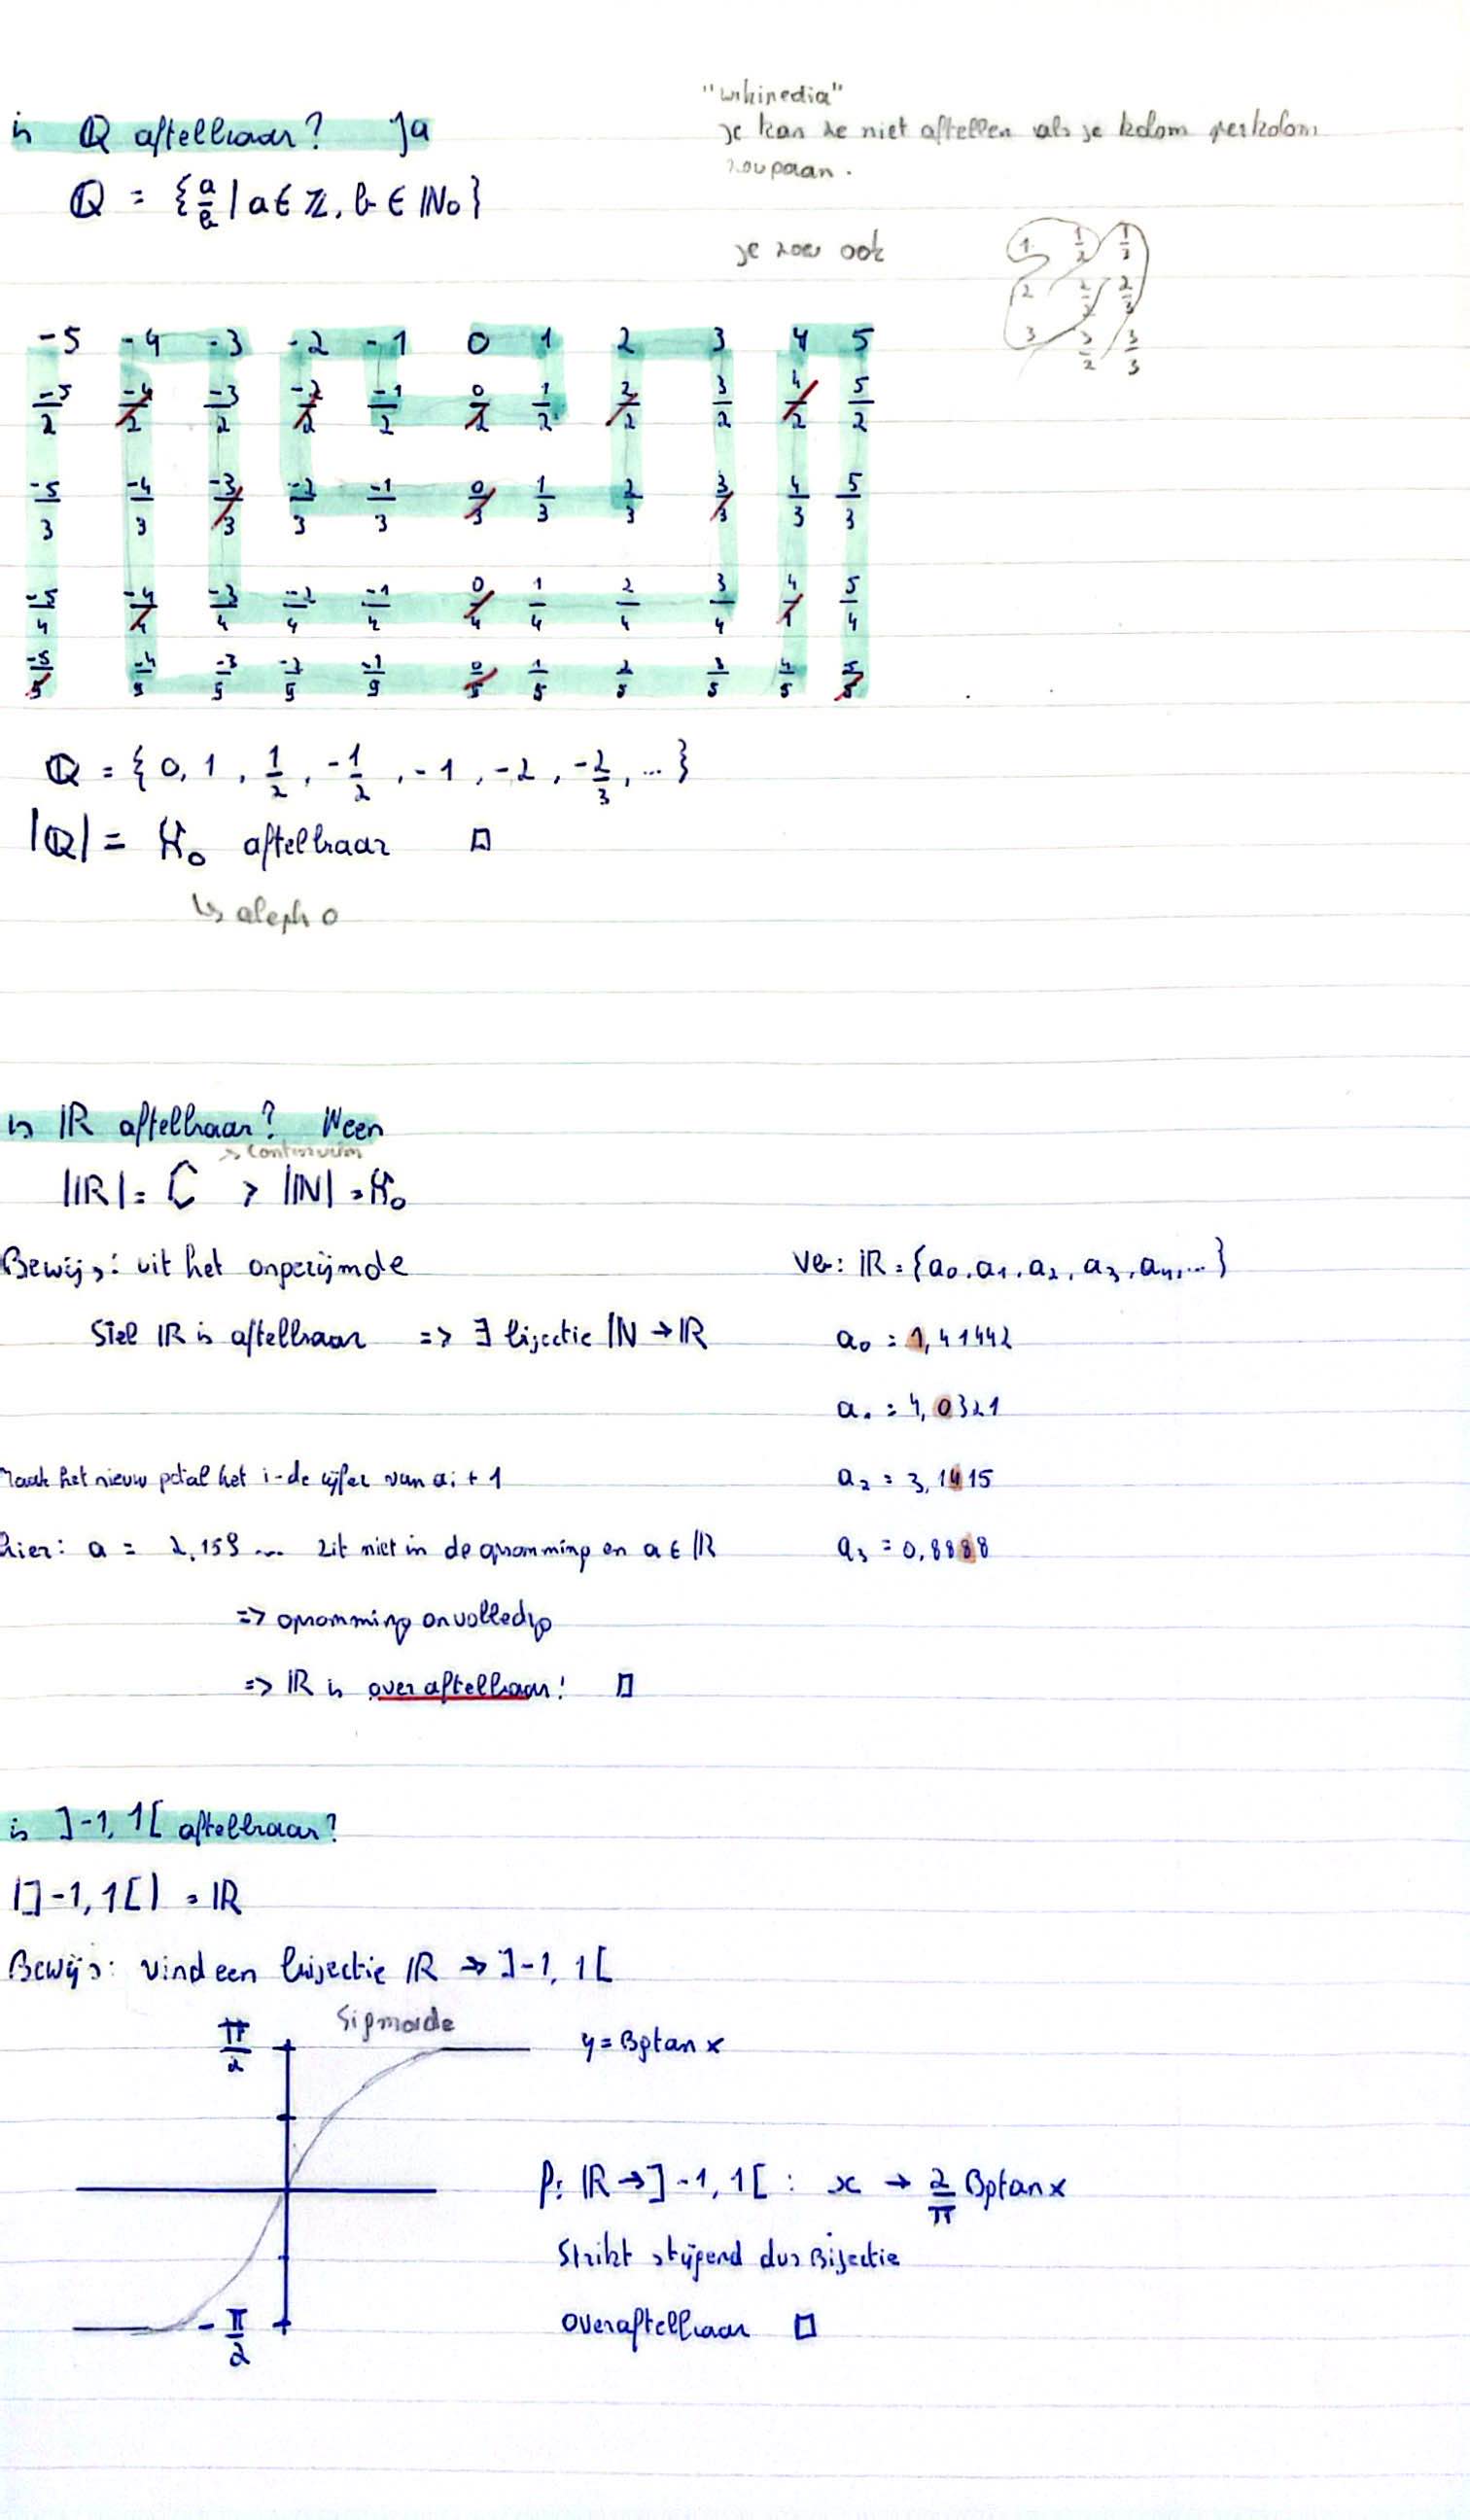 is ℚ aftelbaar? Ja
"wikipedia"
je kan ze niet aftellen als je kolom per kolom
zou gaan.
ℚ = {a/b | a ∈ ℤ, b ∈ ℕ₀}
je zou ook
1 1/2 1/3
2 2/2 2/3
3 3/2 3/3
-5 -4 -3 -2 -1 0 1 2 3 4 5
-5/2 -4/2 -3/2 -2/2 -1/2 0/2 1/2 2/2 3/2 4/2 5/2
-5/3 -4/3 -3/3 -2/3 -1/3 0/3 1/3 2/3 3/3 4/3 5/3
-5/4 -4/4 -3/4 -2/4 -1/4 0/4 1/4 2/4 3/4 4/4 5/4
-5/5 -4/5 -3/5 -2/5 -1/5 0/5 1/5 2/5 3/5 4/5 5/5
ℚ = { 0, 1, 1/2, -1/2, -1, -2, -2/3, ... }
|ℚ| = ℵ₀ aftelbaar □
↳ aleph 0
is ℝ aftelbaar? Neen
> Continuum
|ℝ| = C > |ℕ| = ℵ₀
Bewijs: uit het ongerijmde
Stel ℝ is aftelbaar => ∃ bijectie ℕ → ℝ
Vb: ℝ = {a₀, a₁, a₂, a₃, a₄, ...}
a₀ = 1,41442
a₁ = 4,0321
a₂ = 3,1415
a₃ = 0,8888
Maak het nieuw getal het i-de cijfer van aᵢ + 1
hier: a = 2,159 ... zit niet in de opsomming en a ∈ ℝ
=> opsomming onvolledig
=> ℝ is overaftelbaar! □
is ]-1, 1[ aftelbaar?
|]-1, 1[| = ℝ
Bewijs: vind een bijectie ℝ → ]-1, 1[
π/2
Sigmoide
y = Bgtan x
f: ℝ → ]-1, 1[ : x → 2/π Bgtan x
Strikt stijgend dus Bijectie
-π/2
overaftelbaar □